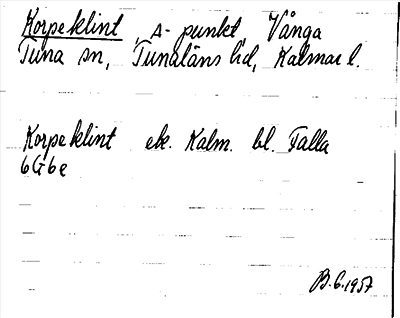 Korpeklint, Δ-punkt, Vånga
Tuna sn, Tunaläns hd, Kalmar l.
Korpeklint ek. Kalm. bl. Falla
6G6e
B.G. 1957